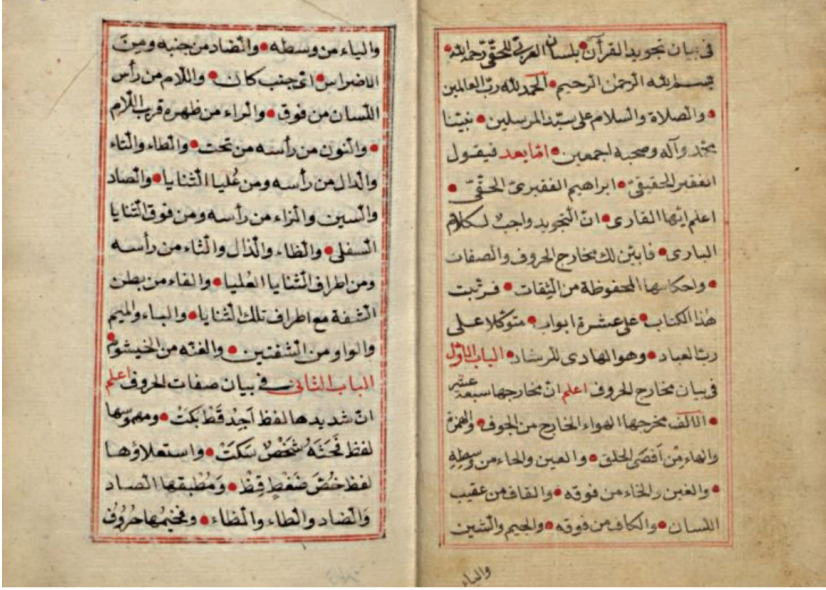 في بيان تجويد القرآن بلسان العربي للحقي رحمه الله
بسم الله الرحمن الرحيم الحمد لله رب العالمين
والصلاة والسلام على سيد المرسلين نبينا
محمد وآله وصحبه اجمعين اما بعد فيقول
الفقير الحقيقي ابراهيم الفقيري الحقي
اعلم ايها القارى ان التجويد واجب لكلام
البارى فابين لك مخارج الحروف والصفات
واحكامها المحفوظة من الثقات فرتبت
هذا الكتاب على عشرة ابواب متوكلا على
رب العباد وهو الهادى للرشاد الباب الاول
فى بيان مخارج الحروف اعلم ان مخارجها سبعة عشر
الالف مخرجها الهواء الخارج من الجوف والهمزة
والهاء من اقصى الحلق والعين والحاء من وسطه
والغين والخاء من فوقه والقاف من عقيب
اللسان والكاف من فوقه والجيم والشين
والياء
والياء من وسطه والضاد من جنبه ومن
الاضراس اى جنب كان واللام من رأس
اللسان من فوق والراء من ظهره قرب اللام
والنون من رأسه من تحت والطاء والتاء
والدال من رأسه ومن عليا الثنايا والصاد
والسين والزاء من رأسه ومن فوق الثنايا
السفلى والظاء والذال والثاء من رأسه
ومن اطراف الثنايا العليا والفاء من بطن
الشفة مع اطراف تلك الثنايا والباء والميم
والواو من الشفتين والغنه من الخيشوم
الباب الثانى فى بيان صفات الحروف اعلم
ان شديدها لفظ اجد قط بكت ومهموسها
لفظ فحثه شخص سكت واستعلاؤها
لفظ خص ضغط قظ ومطبقها الصاد
والضاد والطاء والظاء ومفخيمها حروف